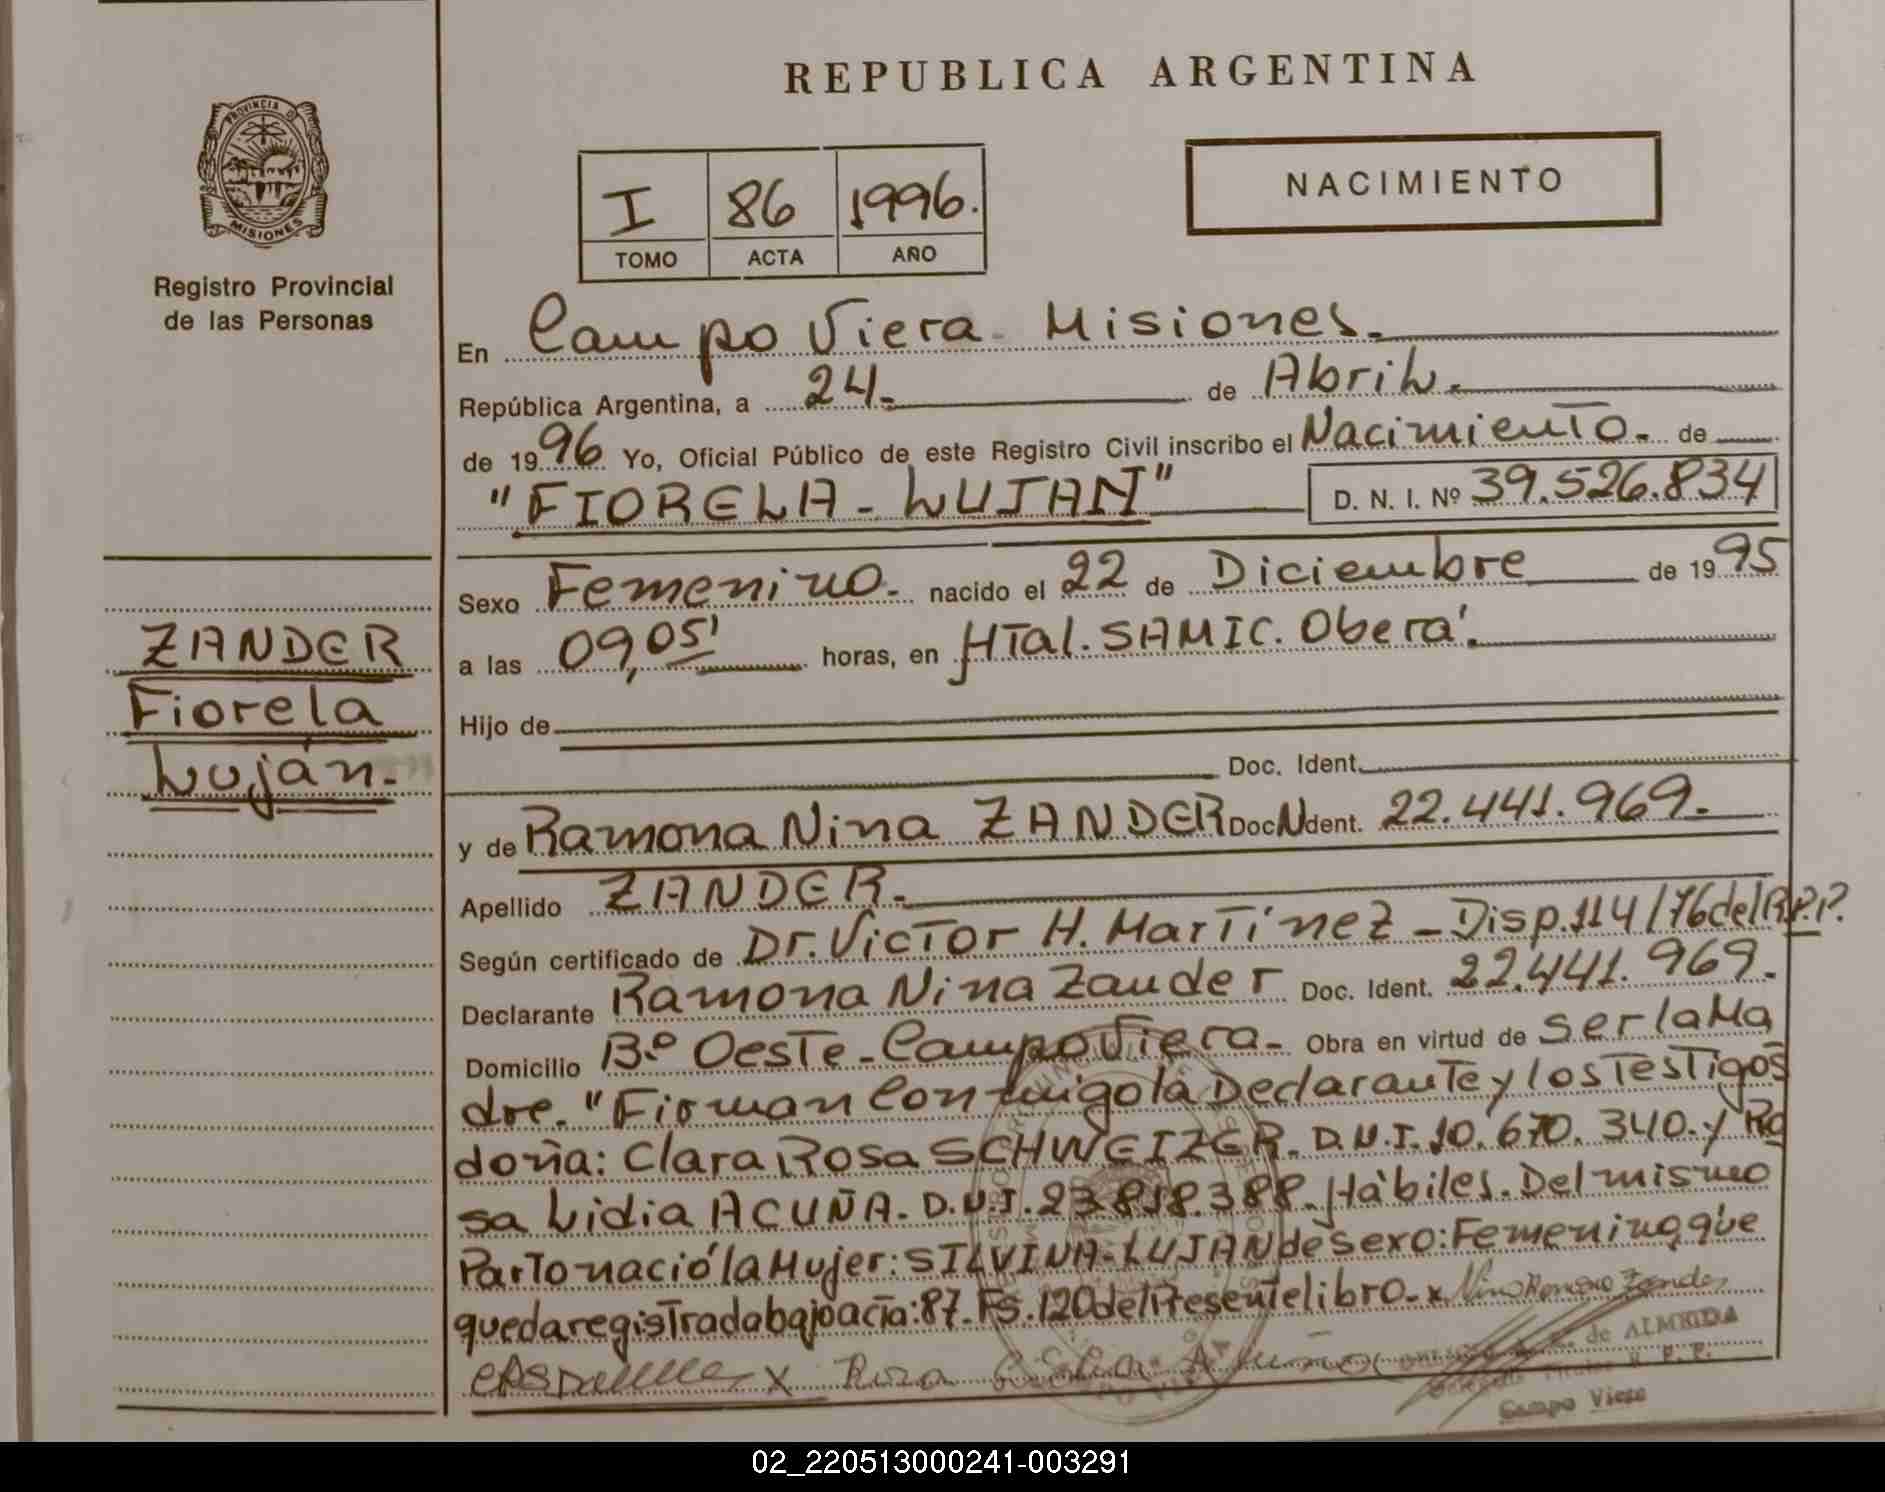 REPUBLICA ARGENTINA
PROVINCIA
MISIONES
Registro Provincial
de las Personas
I 86 1996.
TOMO ACTA AÑO
NACIMIENTO
En Campo Viera - Misiones.
República Argentina, a 24. de Abril.
de 1996 Yo, Oficial Público de este Registro Civil inscribo el Nacimiento. de
"FIORELA - LUJAN" D. N. I. Nº 39.526.834
Sexo Femenino. nacido el 22 de Diciembre de 1995
a las 09,05' horas, en HTal. SAMIC. Oberá.
Hijo de
Doc. Ident.
y de Ramona Nina ZANDER Doc. Ident. 22.441.969.
Apellido ZANDER.
Según certificado de Dr. Victor H. Martínez - Disp. 114/76 del R.P.P.
Declarante Ramona Nina Zander Doc. Ident. 22.441.969.
Domicilio Bº Oeste - Campo Viera - Obra en virtud de ser la Ma
dre. "Firman Conmigo la Declarante y los Testigos
doña: Clara Rosa SCHWEIZER. D.N.I. 10.670.340. y Ro
sa Lidia ACUÑA. D.N.I. 23.818.388. Hábiles. Del mismo
Parto nació la Mujer: SILVINA - LUJAN de sexo: Femenino, que
queda registrada bajo acta: 87. Fs. 120 del Presente libro. x Nina Ramona Zander
x Rosa
de ALMEIDA
Campo Viera
ZANDER
Fiorela
Luján.
02_220513000241-003291